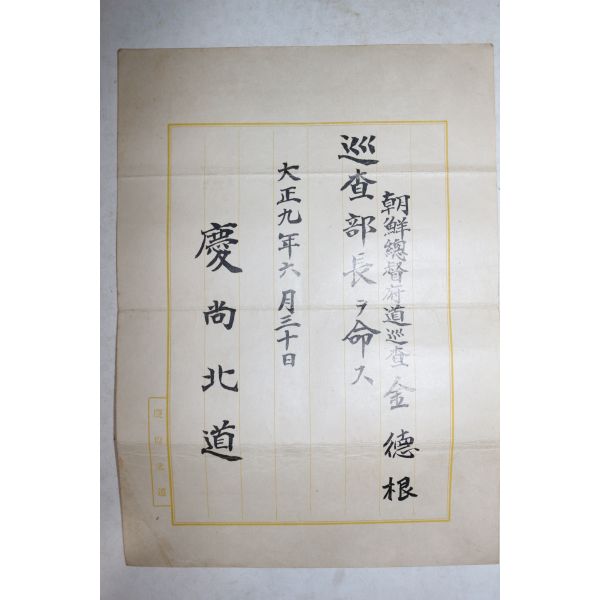 朝鮮總督府道巡查 金德根
巡查部長ヲ命ス
大正九年六月三十日
慶尚北道
慶尚北道